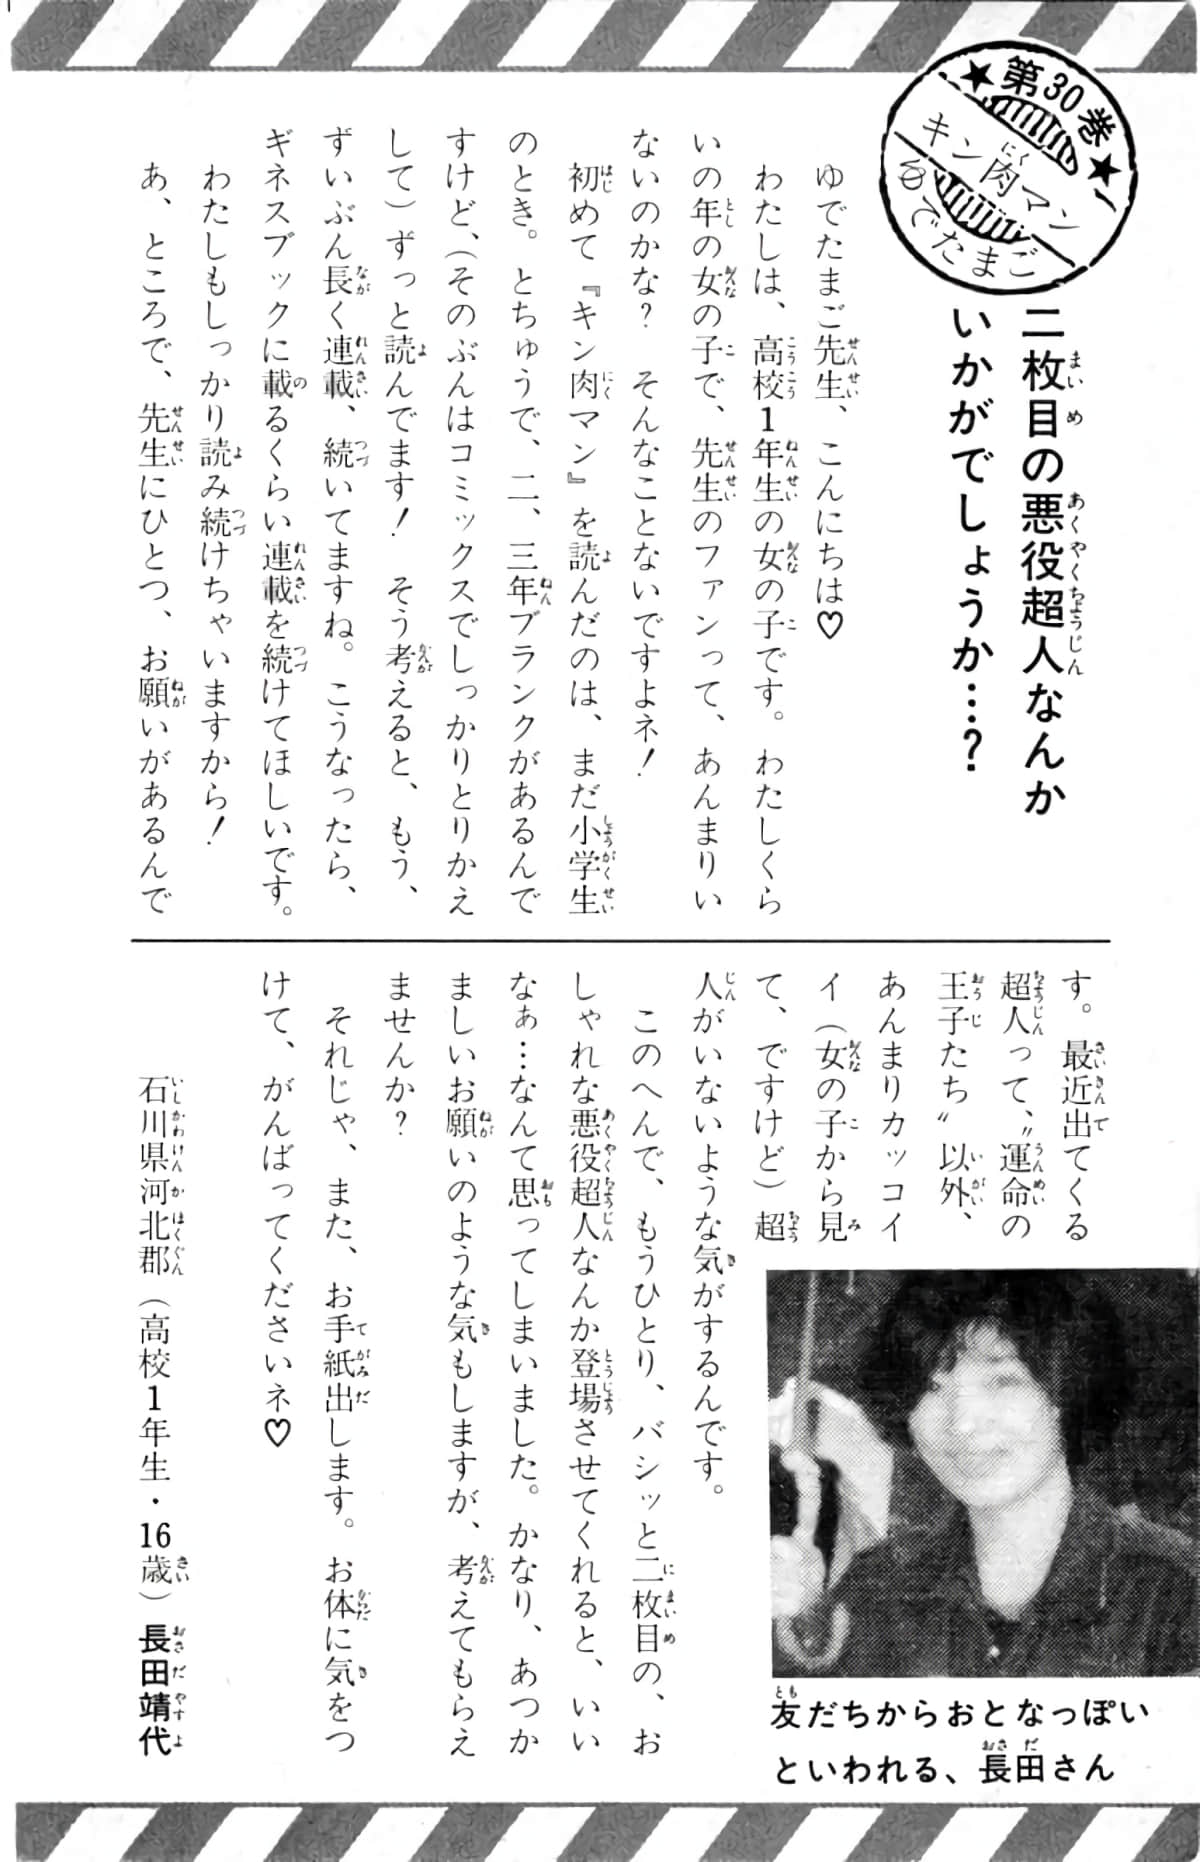 ★第30巻★
キン肉マン
ゆでたまご
二枚目の悪役超人なんか
いかがでしょうか…？
ゆでたまご先生、こんにちは♡
わたしは、高校１年生の女の子です。わたしくら
いの年の女の子で、先生のファンって、あんまりい
ないのかな？　そんなことないですよネ！
初めて『キン肉マン』を読んだのは、まだ小学生
のとき。とちゅうで、二、三年ブランクがあるんで
すけど、（そのぶんはコミックスでしっかりとりかえ
して）ずっと読んでます！　そう考えると、もう、
ずいぶん長く連載、続いてますね。こうなったら、
ギネスブックに載るくらい連載を続けてほしいです。
わたしもしっかり読み続けちゃいますから！
あ、ところで、先生にひとつ、お願いがあるんで
す。最近出てくる
超人って、〝運命の
王子たち〟以外、
あんまりカッコイ
イ（女の子から見
て、ですけど）超
人がいないような気がするんです。
このへんで、もうひとり、バシッと二枚目の、お
しゃれな悪役超人なんか登場させてくれると、いい
なぁ…なんて思ってしまいました。かなり、あつか
ましいお願いのような気もしますが、考えてもらえ
ませんか？
それじゃ、また、お手紙出します。お体に気をつ
けて、がんばってくださいネ♡
石川県河北郡（高校１年生・16歳）長田靖代
友だちからおとなっぽい
といわれる、長田さん